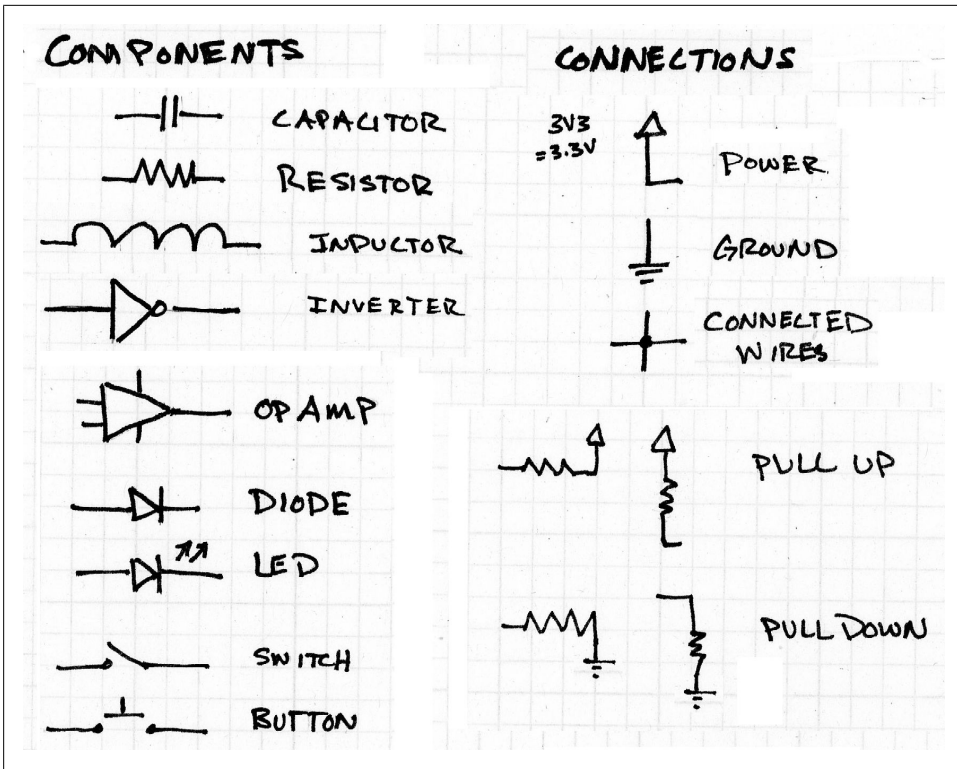 COMPONENTS
CAPACITOR
RESISTOR
INDUCTOR
INVERTER
OP AMP
DIODE
LED
SWITCH
BUTTON
CONNECTIONS
3V3
=3.3V
POWER
GROUND
CONNECTED
WIRES
PULL UP
PULL DOWN